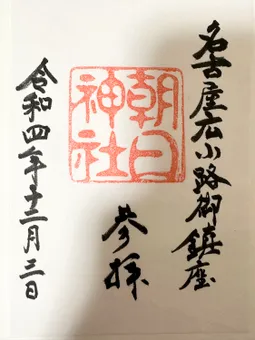 名古屋広小路御鎮座
朝日神社
参拝
令和四年十二月三日